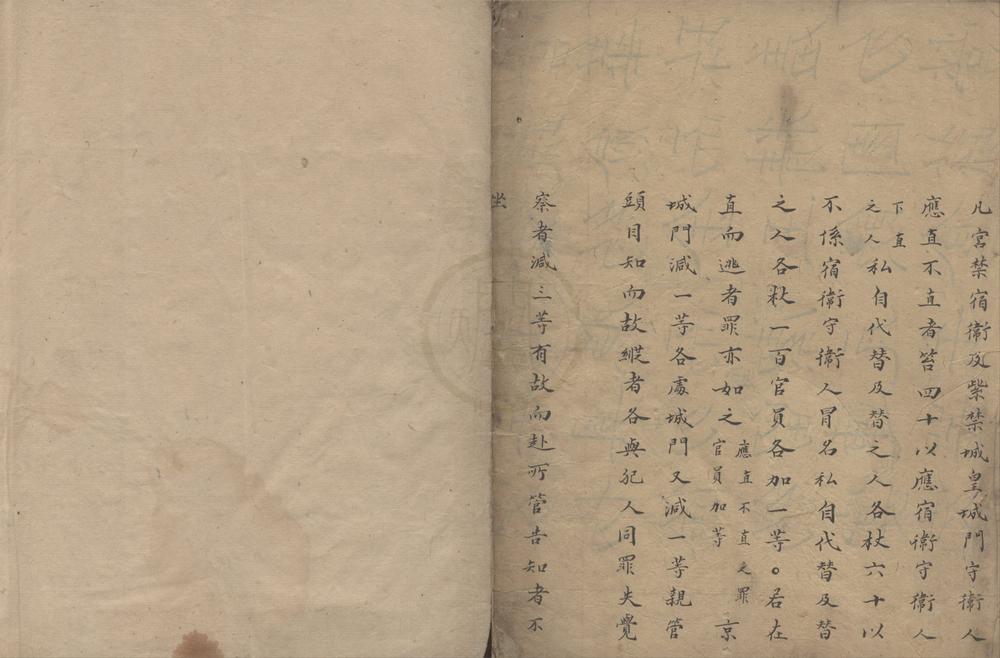 凡宮禁宿衛及紫禁城皇城門守衛人
應直不直者笞四十以應宿衛守衛人
下直之人私自代替及替之人各杖六十以
不係宿衛守衛人冒名私自代替及替
之人各杖一百官員各加一等。若在
直而逃者罪亦如之應直不直之罪官員加等京
城門減一等各處城門又減一等親管
頭目知而故縱者各與犯人同罪失覺
察者減三等有故而赴所管告知者不
坐